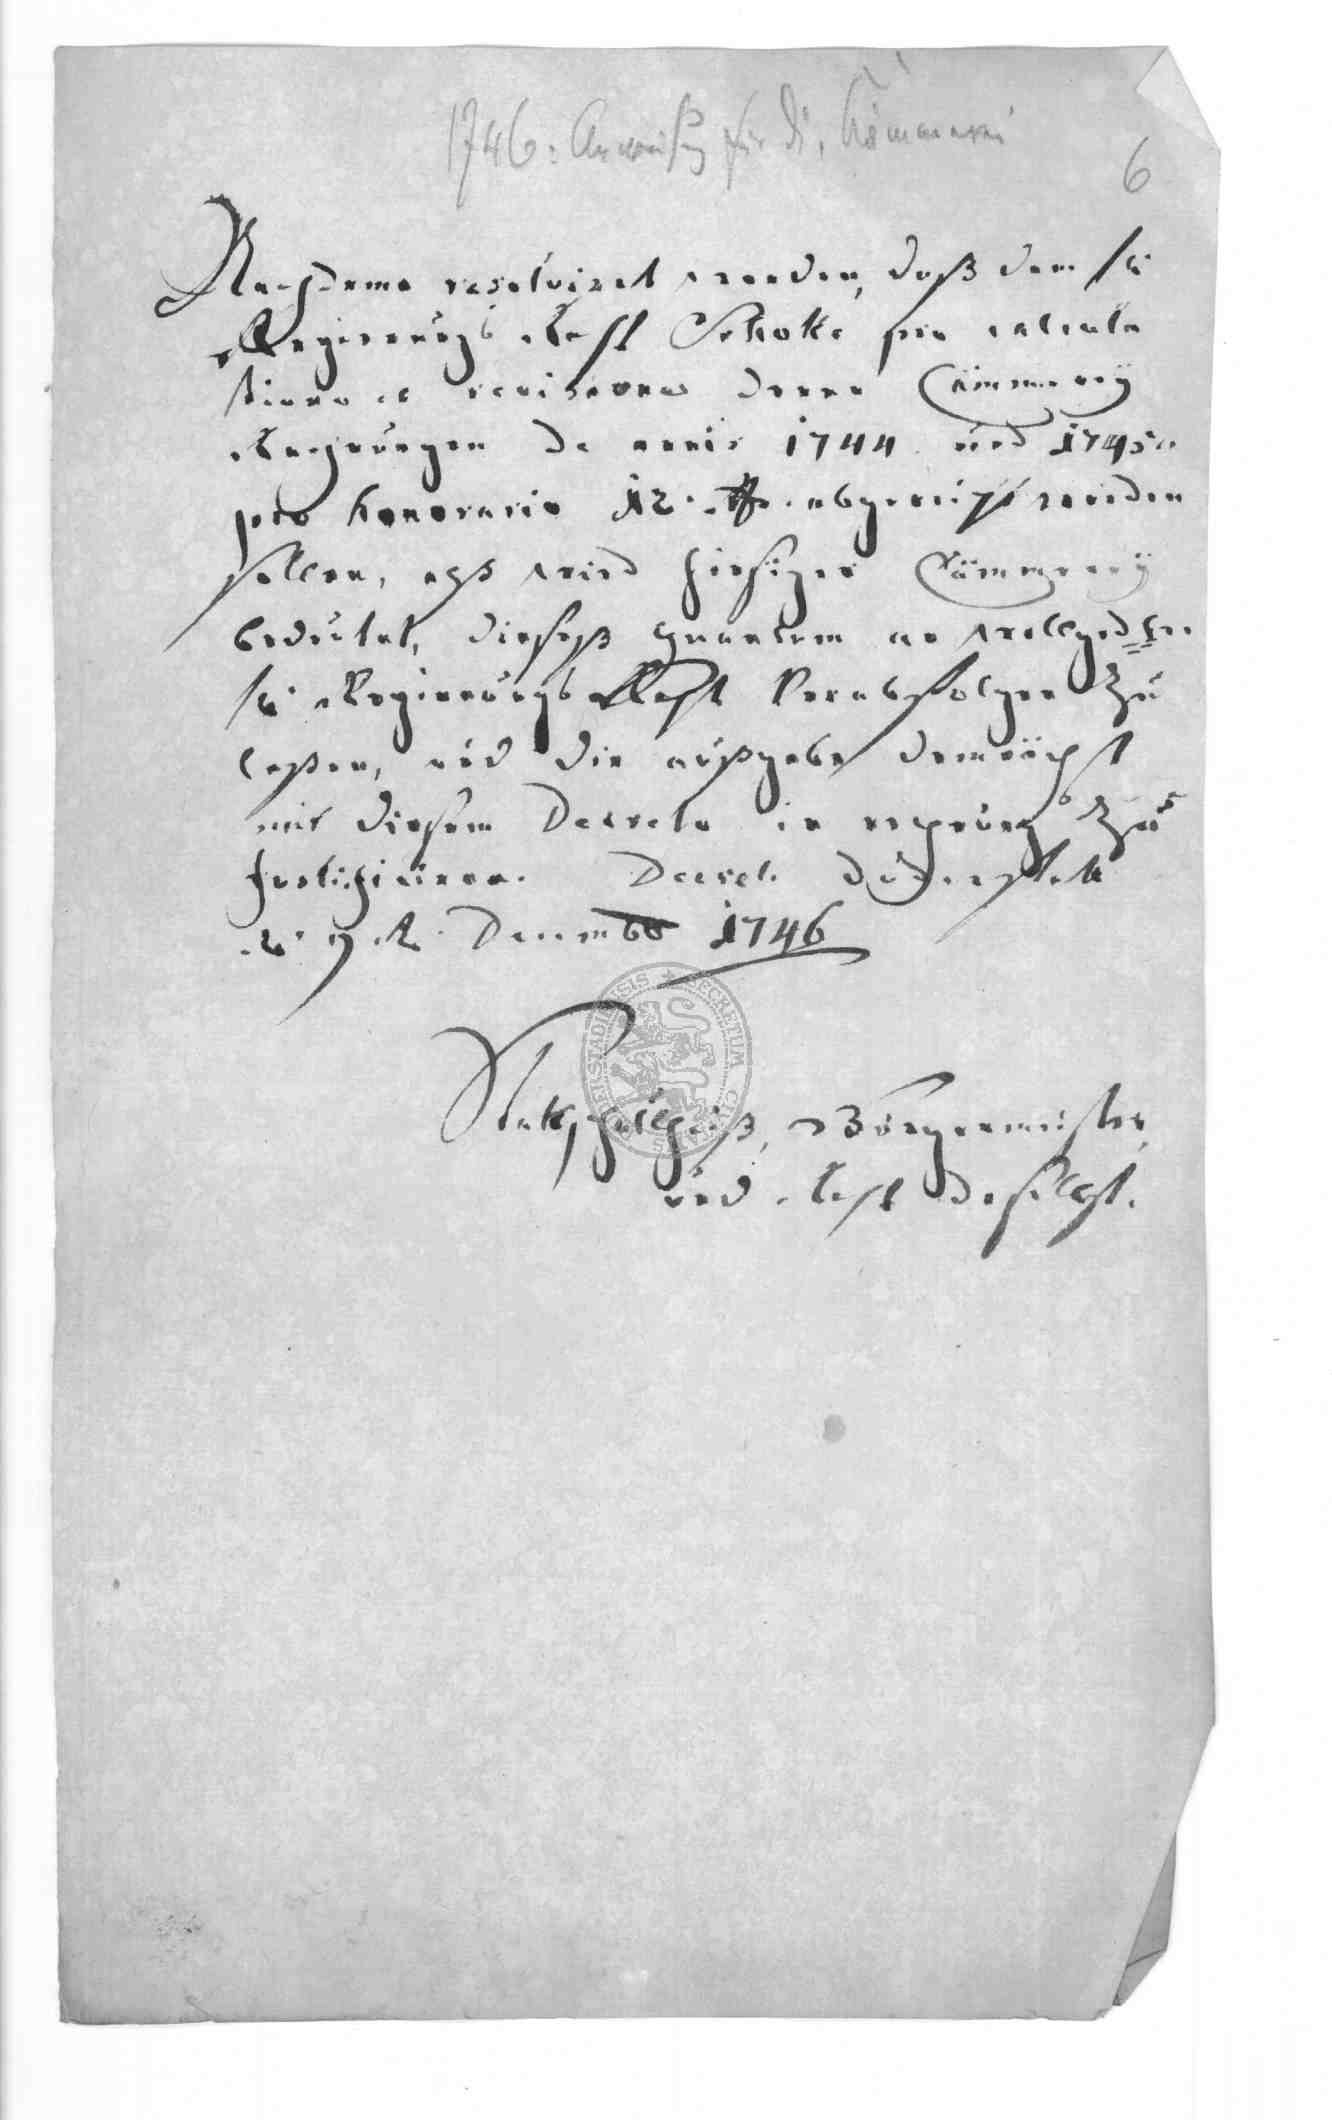 1746: Anweisung für die Kämmerei
6
Nachdeme resolviret worden, daß dem H.
Regierungs Rath Schott pro calcula
tione et revisione deren Cämmerey
Rechnungen de annis 1744 und 1745
pro honorario 12 abgereicht werden
sollen, alß wird hiesiger Cämmerey
bedeutet, dießeß quantum an wollged.
H. Regierungs Rath verabfolgen zu
laßen, und die außgabe demnächst
mit diesem Decreto in rechnung zu
justificiren. Decret. Duderstatt
d. 9. Decembr 1746
Stattschultheiß, Bürgermeister,
und Rath daselbst.
SECRETUM